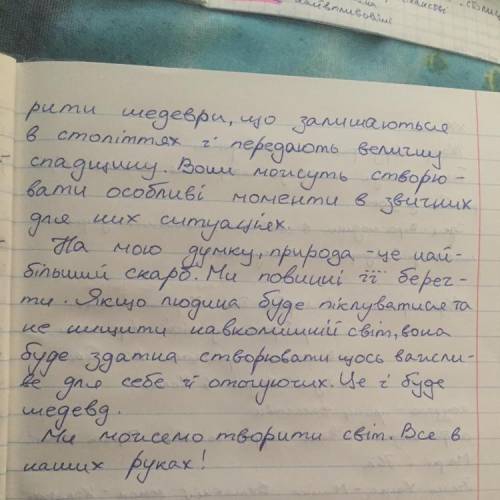 рити шедеври, що залишаються
в століттях і передають величну
спадщину. Вони можуть створю-
вати особливі моменти в звичних
для них ситуаціях.
На мою думку, природа - це най-
більший скарб. Ми повинні її берег-
ти. Якщо людина буде піклуватися та
не нищити навколишній світ, вона
буде здатна створювати щось важли-
ве для себе й оточуючих. Це і буде
шедевд.
Ми можемо творити світ. Все в
наших руках!